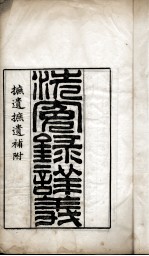 洗冤錄詳義
摭遺摭遺補附